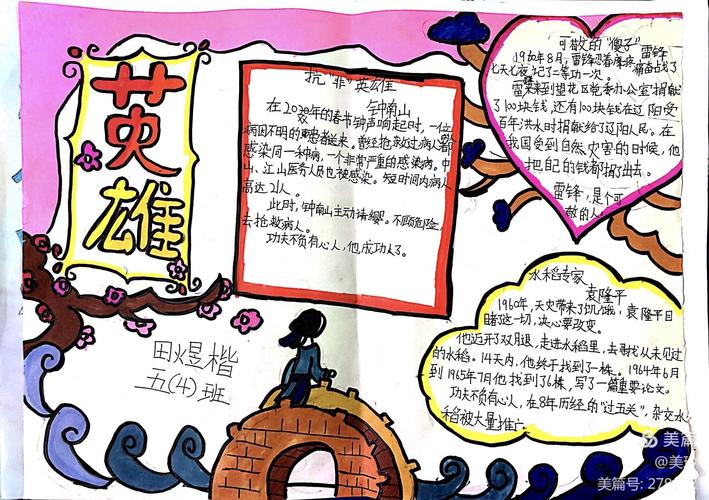 英雄
抗"非"英雄
钟南山
在2020年的春节钟声响起时，一位
病因不明的患者送来。曾经抢救过病人都
感染同一种病，一个非常严重的感染病。中
山、江山医务人员也被感染。短时间内病人
高达21人。
此时，钟南山主动请缨。不顾危险，
去抢救病人。
功夫不负有心人，他成功了。
可敬的"傻子"
雷锋
1960年8月，雷锋忍着疼痛奋战了
七天七夜，记了二等功一次。
雷锋来到望花区党委办公室捐献
了100块钱，还有100块钱在辽阳受
百年洪水时捐献给了辽阳人民。在
我国受到自然灾害的时候，他
把自己的钱都捐了出去。
雷锋，是个可
敬的人
水稻专家
袁隆平
1960年，天灾带来了饥饿，袁隆平目
睹这一切，决心要改变。
他迈开了双腿，走进水稻里，去寻找从未见过
的水稻。14天内，他终于找到了一株。1964年6月
到1965年7月他找到了6株，写了一篇重要论文。
功夫不负有心人，在8年历经的"过五关"，杂交水
稻被大量推广
田煜楷
五(4)班
美篇
@美
美篇号: 27